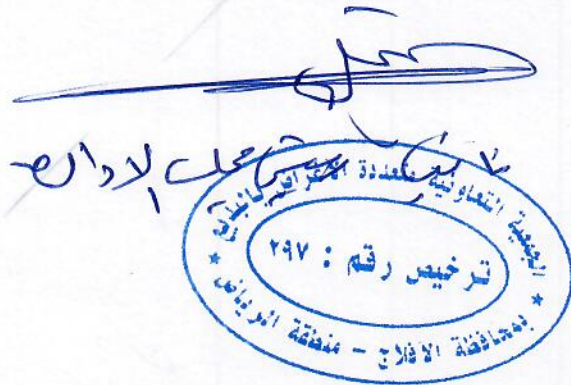 نائب رئيس مجلس الادارة
الجمعية التعاونية متعددة الأغراض بالبديع
ترخيص رقم : ٢٩٧
بمحافظة الافلاج - منطقة الرياض